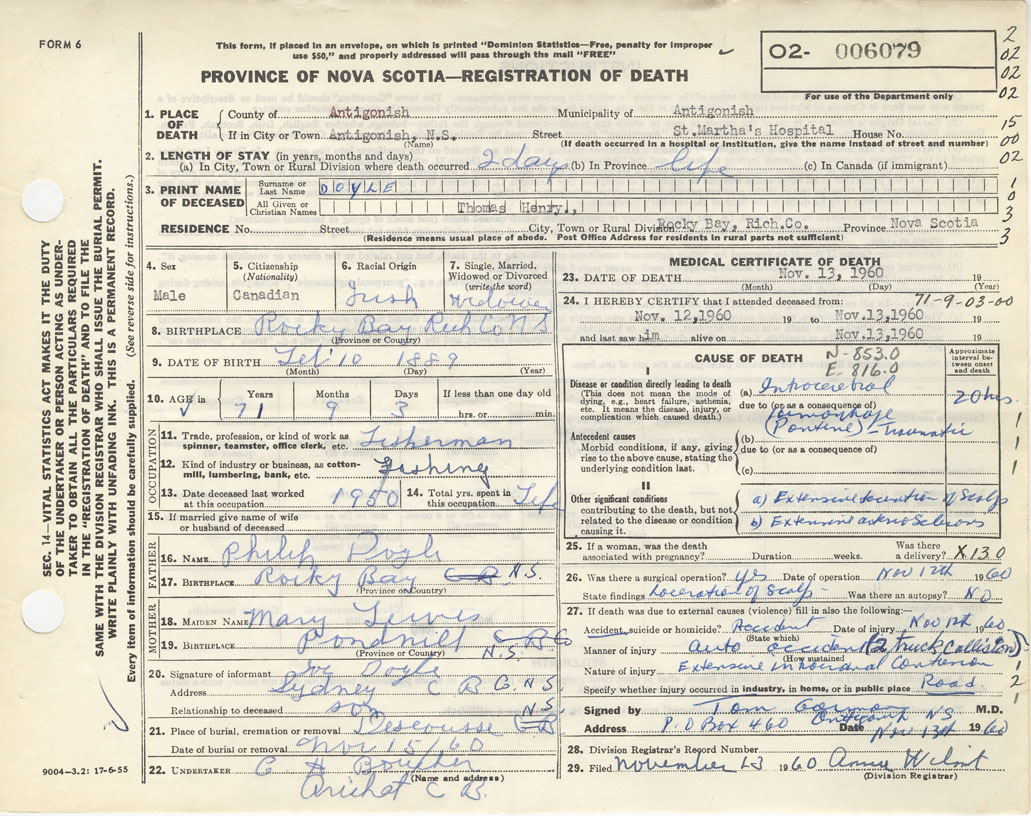 FORM 6
This form, if placed in an envelope, on which is printed "Dominion Statistics—Free, penalty for improper
use $50," and properly addressed will pass through the mail "FREE"
PROVINCE OF NOVA SCOTIA—REGISTRATION OF DEATH
O2- 006079
For use of the Department only
2
02
02
02
15
00
02
1
0
3
3
1. PLACE OF DEATH
County of Antigonish Municipality of Antigonish
If in City or Town Antigonish, N.S. Street St.Martha's Hospital House No.
(Name) (If death occurred in a hospital or institution, give the name instead of street and number)
2. LENGTH OF STAY (in years, months and days)
(a) In City, Town or Rural Division where death occurred 2 days (b) In Province life (c) In Canada (if immigrant)
3. PRINT NAME OF DECEASED
Surname or Last Name DOYLE
All Given or Christian Names Thomas Henry.,
RESIDENCE No. Street City, Town or Rural Division Rocky Bay, Rich.Co. Province Nova Scotia
(Residence means usual place of abode. Post Office Address for residents in rural parts not sufficient)
4. Sex
Male
5. Citizenship
(Nationality)
Canadian
6. Racial Origin
Irish
7. Single, Married,
Widowed or Divorced
(write the word)
Widower
8. BIRTHPLACE Rocky Bay Rich Co N S
(Province or Country)
9. DATE OF BIRTH Feb 10 1889
(Month) (Day) (Year)
10. AGE in Years Months Days If less than one day old
71 9 3 hrs. or min.
OCCUPATION
11. Trade, profession, or kind of work as
spinner, teamster, office clerk, etc. Fisherman
12. Kind of industry or business, as cotton-
mill, lumbering, bank, etc. Fishing
13. Date deceased last worked
at this occupation 1950
14. Total yrs. spent in
this occupation Life
15. If married give name of wife
or husband of deceased
FATHER
16. NAME Philip Doyle
17. BIRTHPLACE Rocky Bay C B N.S.
(Province or Country)
MOTHER
18. MAIDEN NAME Mary
19. BIRTHPLACE N.S.
(Province or Country)
20. Signature of informant Doyle
Address Sydney C B N.S.
Relationship to deceased son
21. Place of burial, cremation or removal Descousse N.S.
Date of burial or removal Nov 15/60
22. UNDERTAKER C H Boucher
(Name and address)
Arichat C B.
MEDICAL CERTIFICATE OF DEATH
23. DATE OF DEATH Nov. 13, 1960
(Month) (Day) (Year)
24. I HEREBY CERTIFY that I attended deceased from: 71-9-03-00
Nov. 12,1960 19 to Nov.13,1960
and last saw him alive on Nov.13,1960
CAUSE OF DEATH N-853.0
E. 816.0
Approximate
interval be-
tween onset
and death
I
Disease or condition directly leading to death
(This does not mean the mode of
dying, e.g., heart failure, asthenia,
etc. It means the disease, injury, or
complication which caused death.)
(a) Intracerebral 20 hrs.
due to (or as a consequence of)
Hemorrhage
(Pontine) – Traumatic
Antecedent causes
Morbid conditions, if any, giving
rise to the above cause, stating the
underlying condition last.
(b)
due to (or as a consequence of)
(c)
II
Other significant conditions
contributing to the death, but not
related to the disease or condition
causing it.
a) Extensive laceration of Scalp
b) Extensive
25. If a woman, was the death
associated with pregnancy? Duration weeks. Was there
a delivery? X130
26. Was there a surgical operation? Yes Date of operation Nov 12th 1960
State findings Laceration of Scalp Was there an autopsy? No
27. If death was due to external causes (violence) fill in also the following:—
Accident, suicide or homicide? Accident Date of injury Nov 12th 1960
(State which)
Manner of injury Auto accident (2 truck collision)
(How sustained
Nature of injury Extensive Intracranial Contusion
Specify whether injury occurred in industry, in home, or in public place Road
Signed by Tom M.D.
Antigonish NS
Address P.O Box 460 Date Nov 13th 1960
28. Division Registrar's Record Number
29. Filed November 13 1960 Annie
(Division Registrar)
1
1
1
1
2
1
SEC. 14—VITAL STATISTICS ACT MAKES IT THE DUTY
OF THE UNDERTAKER OR PERSON ACTING AS UNDER-
TAKER TO OBTAIN ALL THE PARTICULARS REQUIRED
IN THE "REGISTRATION OF DEATH" AND TO FILE THE
SAME WITH THE DIVISION REGISTRAR WHO SHALL ISSUE THE BURIAL PERMIT.
WRITE PLAINLY WITH UNFADING INK. THIS IS A PERMANENT RECORD.
Every item of information should be carefully supplied. (See reverse side for instructions.)
9004—3.2: 17-6-55